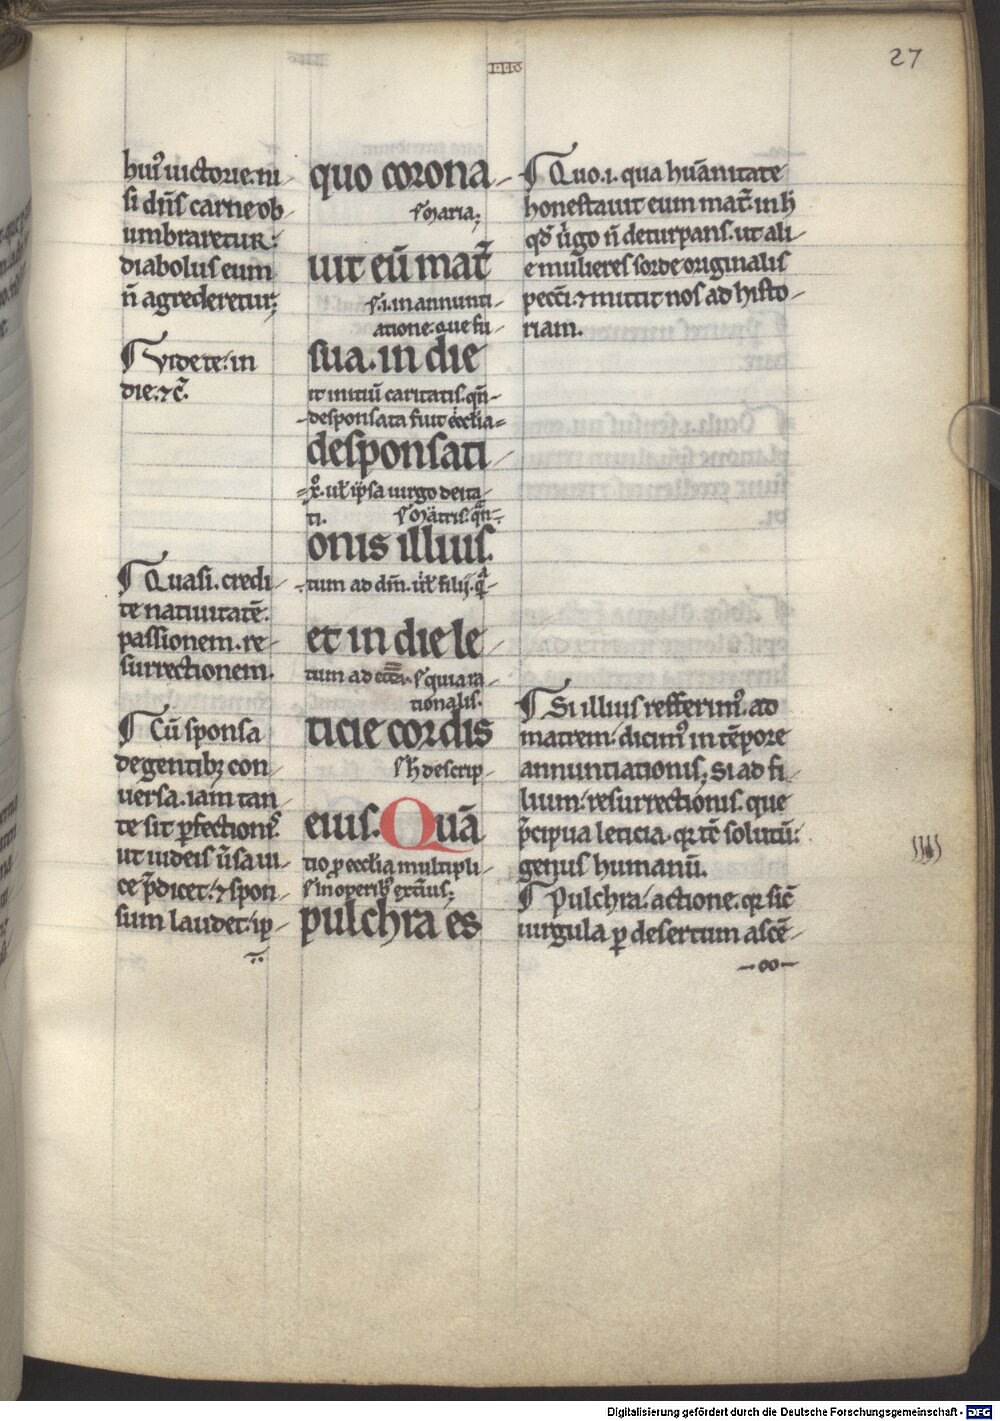 27
IIII
hui᷒ uictorie. ni-
si dn̄s carne ob-
umbraretur:
diabolus eum
n̄ agrederetur;
¶ Videte: in
die. ⁊ c̄.
¶ Quasi. credi-
te natiuitatē.
passionem. re-
surrectionem.
¶ Cū sponsa
de gentibꝫ con-
uersa. iam tan-
te sit ꝑfectionis᷒
ut iudeis ūsa ui-
ce p̄dicet: ⁊ spon-
sum laudet: iꝑ-
quo corona-
s. maria;
uit eū mat̄
s. i. in annunti-
atione. que fu-
sua. in die
it initiū caritatis. qn̄-
desponsata fuit eccl̄ia=
desponsati-
x᷒. ul̄ ip̄sa uirgo deita-
ti. s. matris. qn̄-
onis illius.
tum ad dm̄. ul̄ filij. qͣ-
et in die le-
tum ad s. quia ra-
tionalis.
ticie cordis
s. h̄ descrip-
eius. Quā
tio ꝓ eccl̄ia multipli-
s. in operibꝰ ext̄ius;
pulchra es
¶ Quo. i. qua hūanitate
honestauit eum mat̄. in h̄
qd̄ ūgo n̄ deturpans. ut ali-
e mulieres sorde originalis
pecc̄i. ⁊ mittit nos ad histo-
riam.
¶ Si illius refferim᷒. ad
matrem: dicim᷒ in tēpore
annuntiationis; Si ad fi-
lium: resurrectionis. que
p̄cipua leticia. qꝛ tc̄ solutū:
genus humanū.
¶ Pulchra: actione. qꝛ sic̄
uirgula ꝑ desertum ascē-
Digitalisierung gefördert durch die Deutsche Forschungsgemeinschaft - DFG